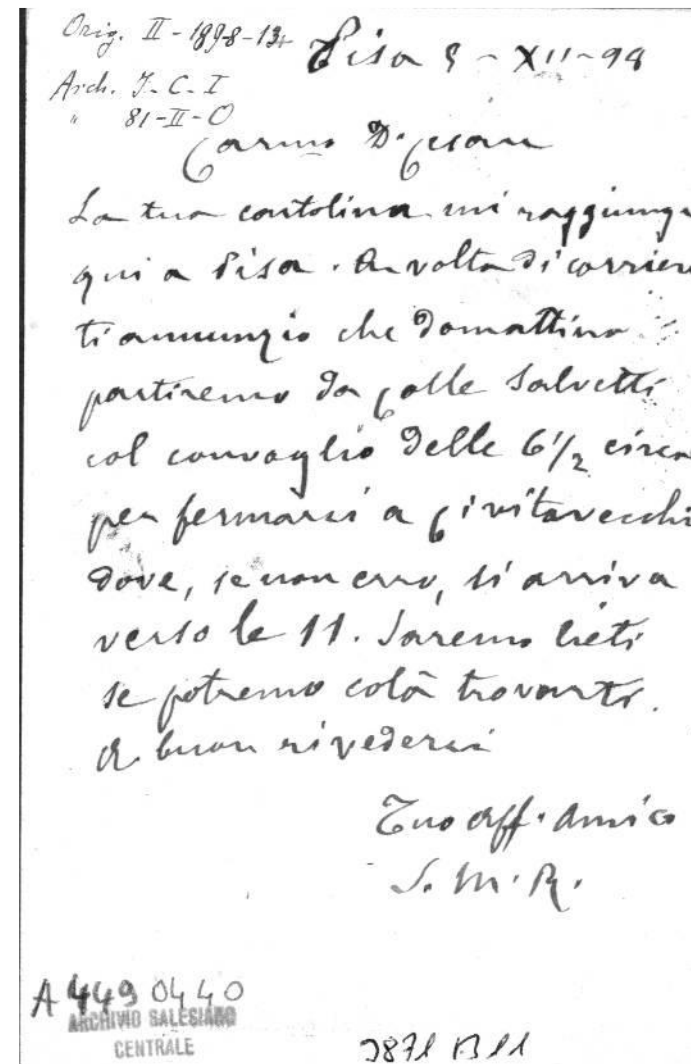 Orig. II-1898-134
Pisa 9-XII-98
Arch. J-C-I
" 81-II-O
Carmo D. Cesare
La tua cartolina mi raggiunge
qui a Pisa. A volta di corriere
ti annunzio che domattina
partiremo da Colle Salvetti
col convoglio delle 6 1/2 circa
per fermarci a Civitavecchi
dove, se non erro, si arriva
verso le 11. Saremo lieti
se potremo colà trovarti.
A buon rivederci
Tuo aff. Amico
S. M. R.
A 449 0440
ARCHIVIO SALESIANO
CENTRALE
3871 B11